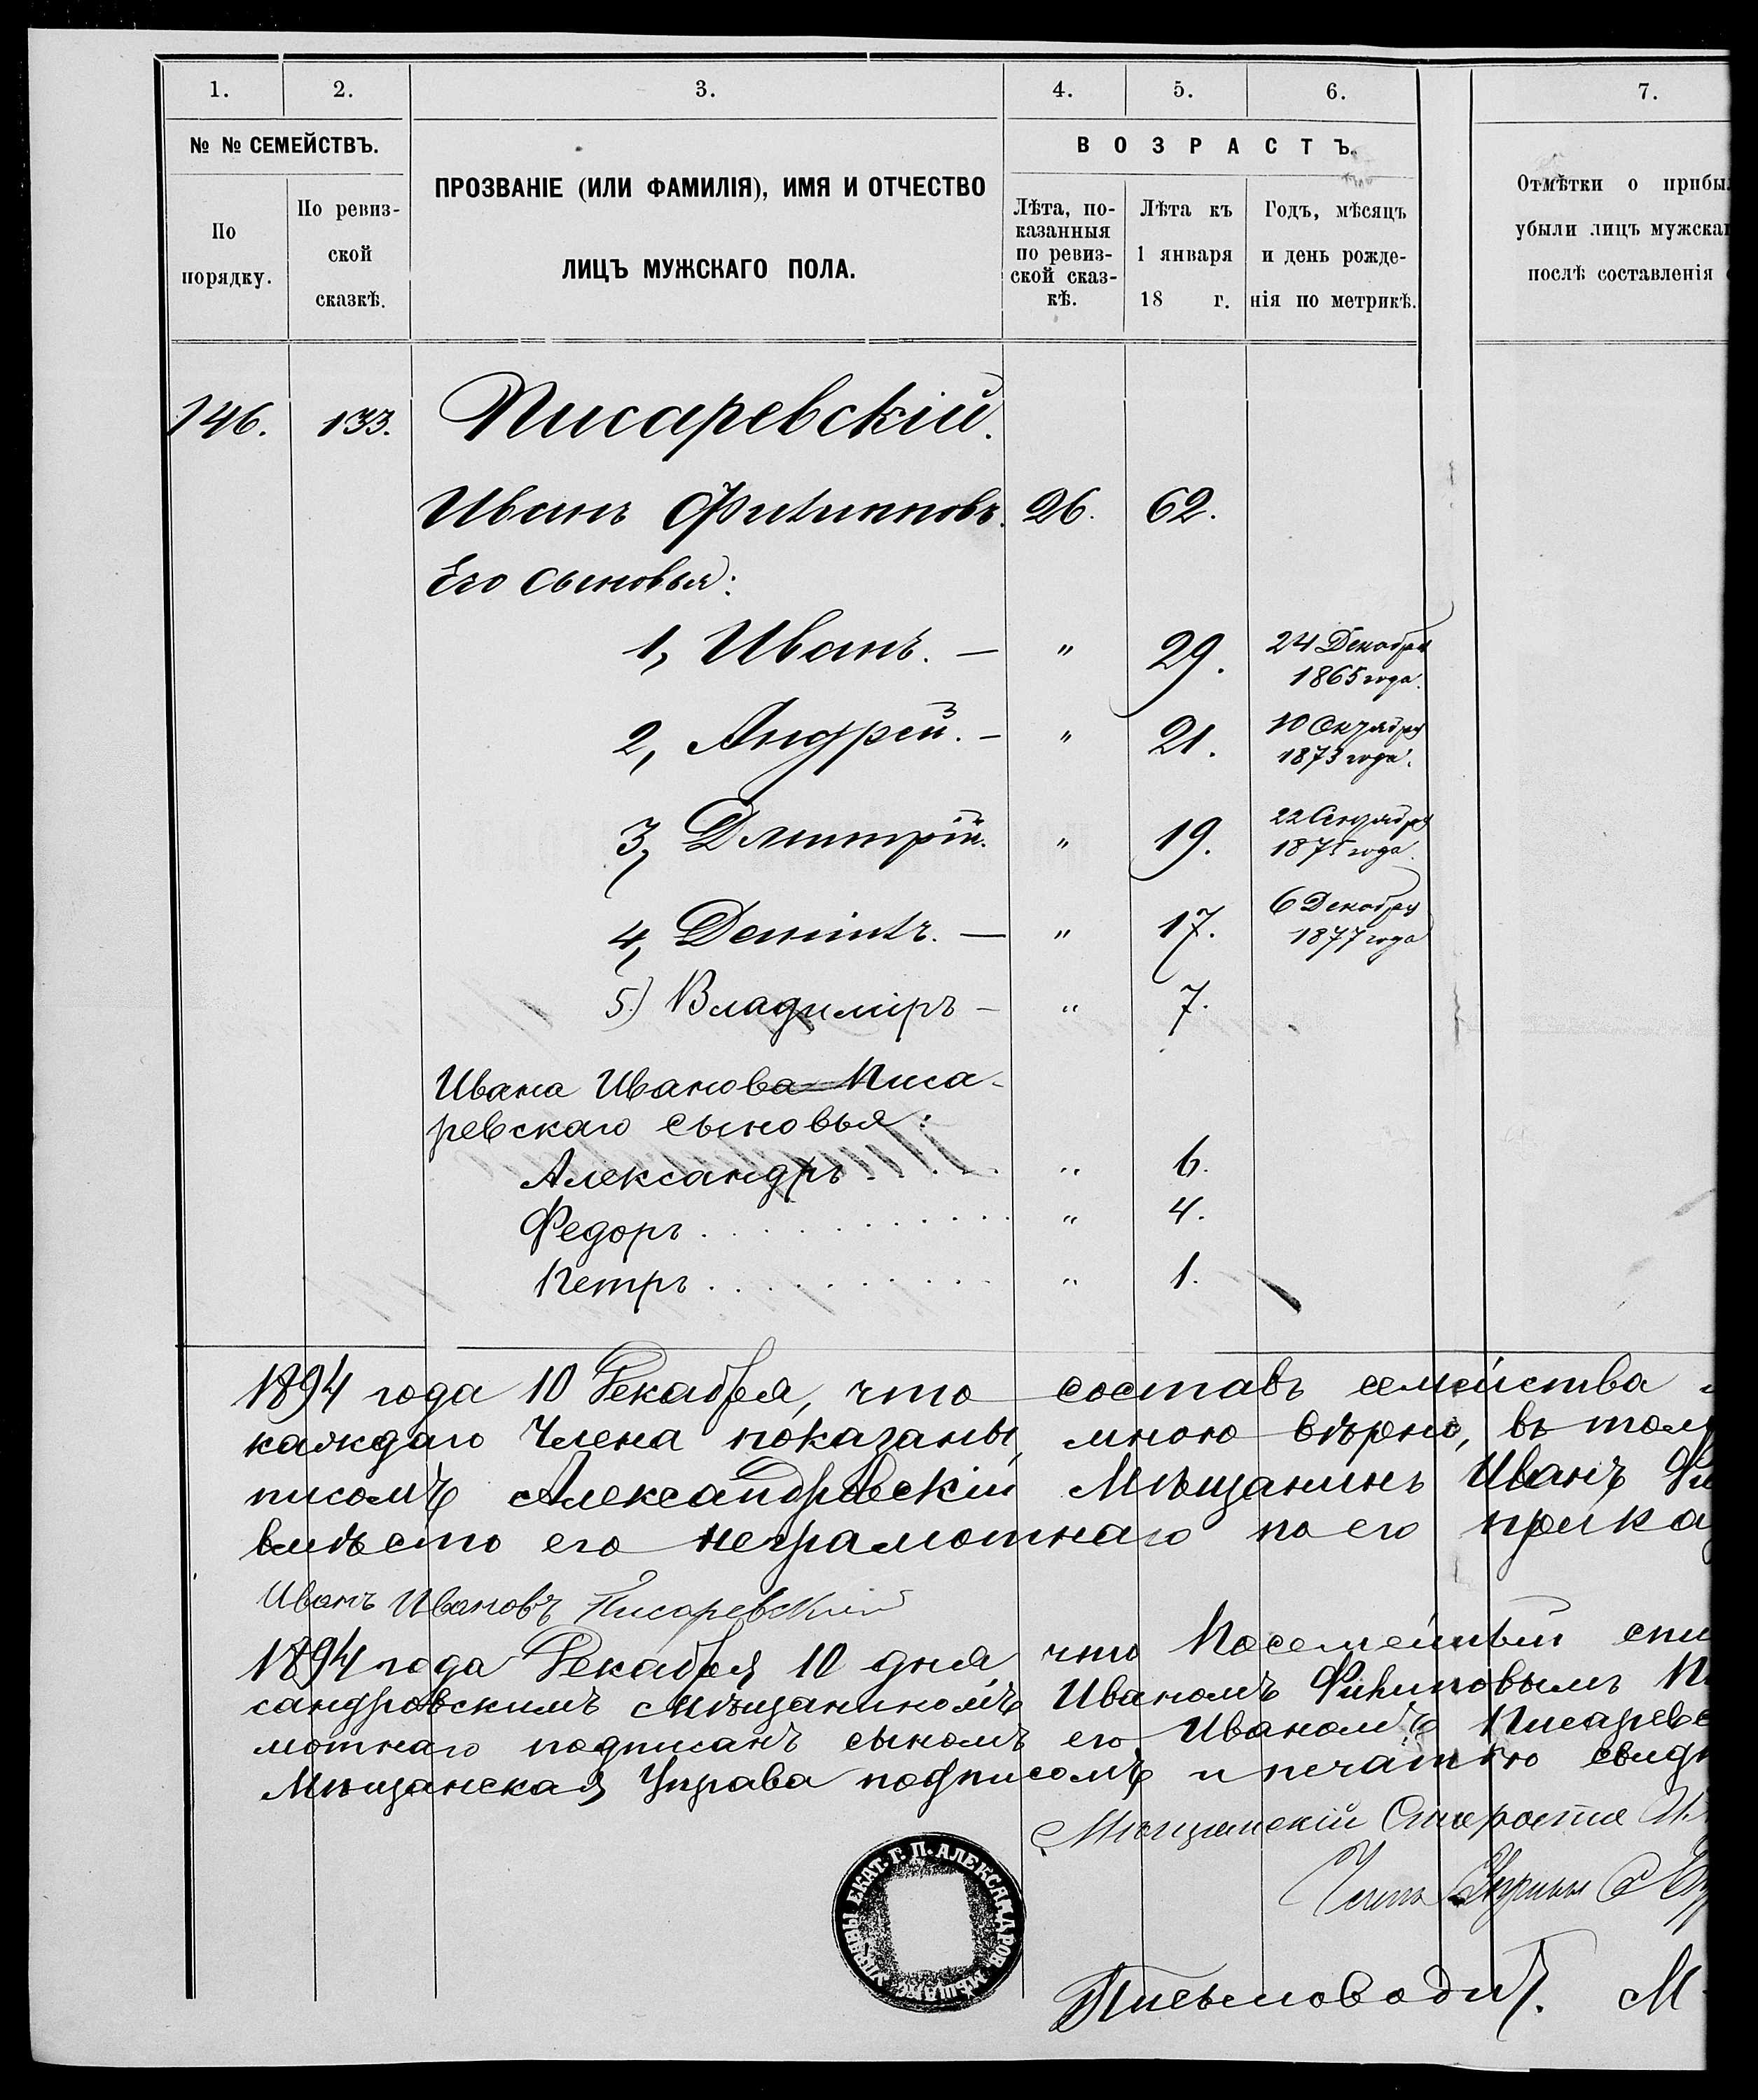 1. 2. 3. 4. 5. 6. 7.
№ № СЕМЕЙСТВЪ.
По порядку.
По ревиз-
ской
сказкѣ.
ПРОЗВАНІЕ (ИЛИ ФАМИЛІЯ), ИМЯ И ОТЧЕСТВО
ЛИЦЪ МУЖСКАГО ПОЛА.
ВОЗРАСТЪ.
Лѣта, по-
казанныя
по ревиз-
ской сказ-
кѣ.
Лѣта къ
1 января
18 г.
Годъ, мѣсяцъ
и день рожде-
нія по метрикѣ.
Отмѣтки о прибы
убыли лицъ мужска
послѣ составленія
146. 133. Писаревскій.
Иванъ Филипповъ. 26. 62.
Его сыновья:
1, Иванъ. — " 29. 24 Декабря
1865 года.
2, Андрей. — " 21. 10 Октября
1873 года.
3, Дмитрій. " 19. 22 Сентября
1875 года.
4, Даніилъ. — " 17. 6 Декабря
1877 года
5.) Владиміръ — " 7.
Ивана Иванова Писа-
ревскаго сыновья:
Александръ . . . " 6.
Федоръ . . . . . . . . . " 4.
Петръ . . . . . . . . . " 1.
1894 года 10 Декабря, что составъ семейства
каждаго Члена показаны мною вѣрно, въ том
писомъ Александровскій Мѣщанинъ Иванъ Фи
вмѣсто его неграмотнаго по его прика
Иванъ Ивановъ Писаревский
1894 года Декабря 10 дня что Посемейный спи
сандровскимъ Мѣщаниномъ Иваномъ Филиповымъ П
мотнаго подписанъ сыномъ его Иваномъ Писаревс
Мѣщанская Управа подписомъ и печатью свид
Мѣщанскій Староста
Членъ Управы
ЕКАТ. Г. П. АЛЕКСАНДРОВ. МѢЩАНС. УПРАВЫ
Письмовод. М